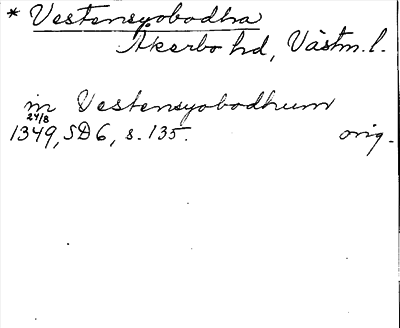 * Vestensyobodha
Åkerbo hd, Västm. l.
in Vestensyobodhum
24/8
1349, SD 6, s. 135. orig.